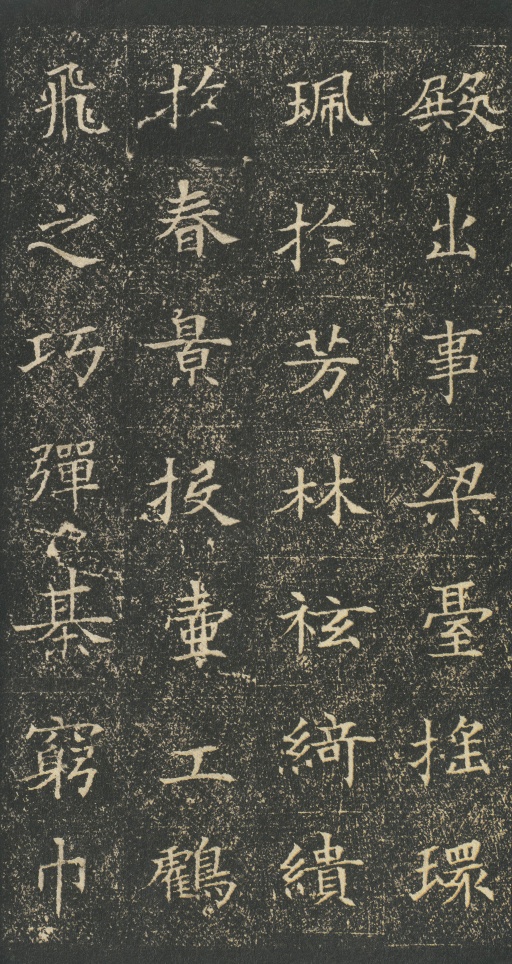 殿出事梁臺搖環
珮於芳林袨綺繢
於春景投壷工鶴
飛之巧彈棊窮巾